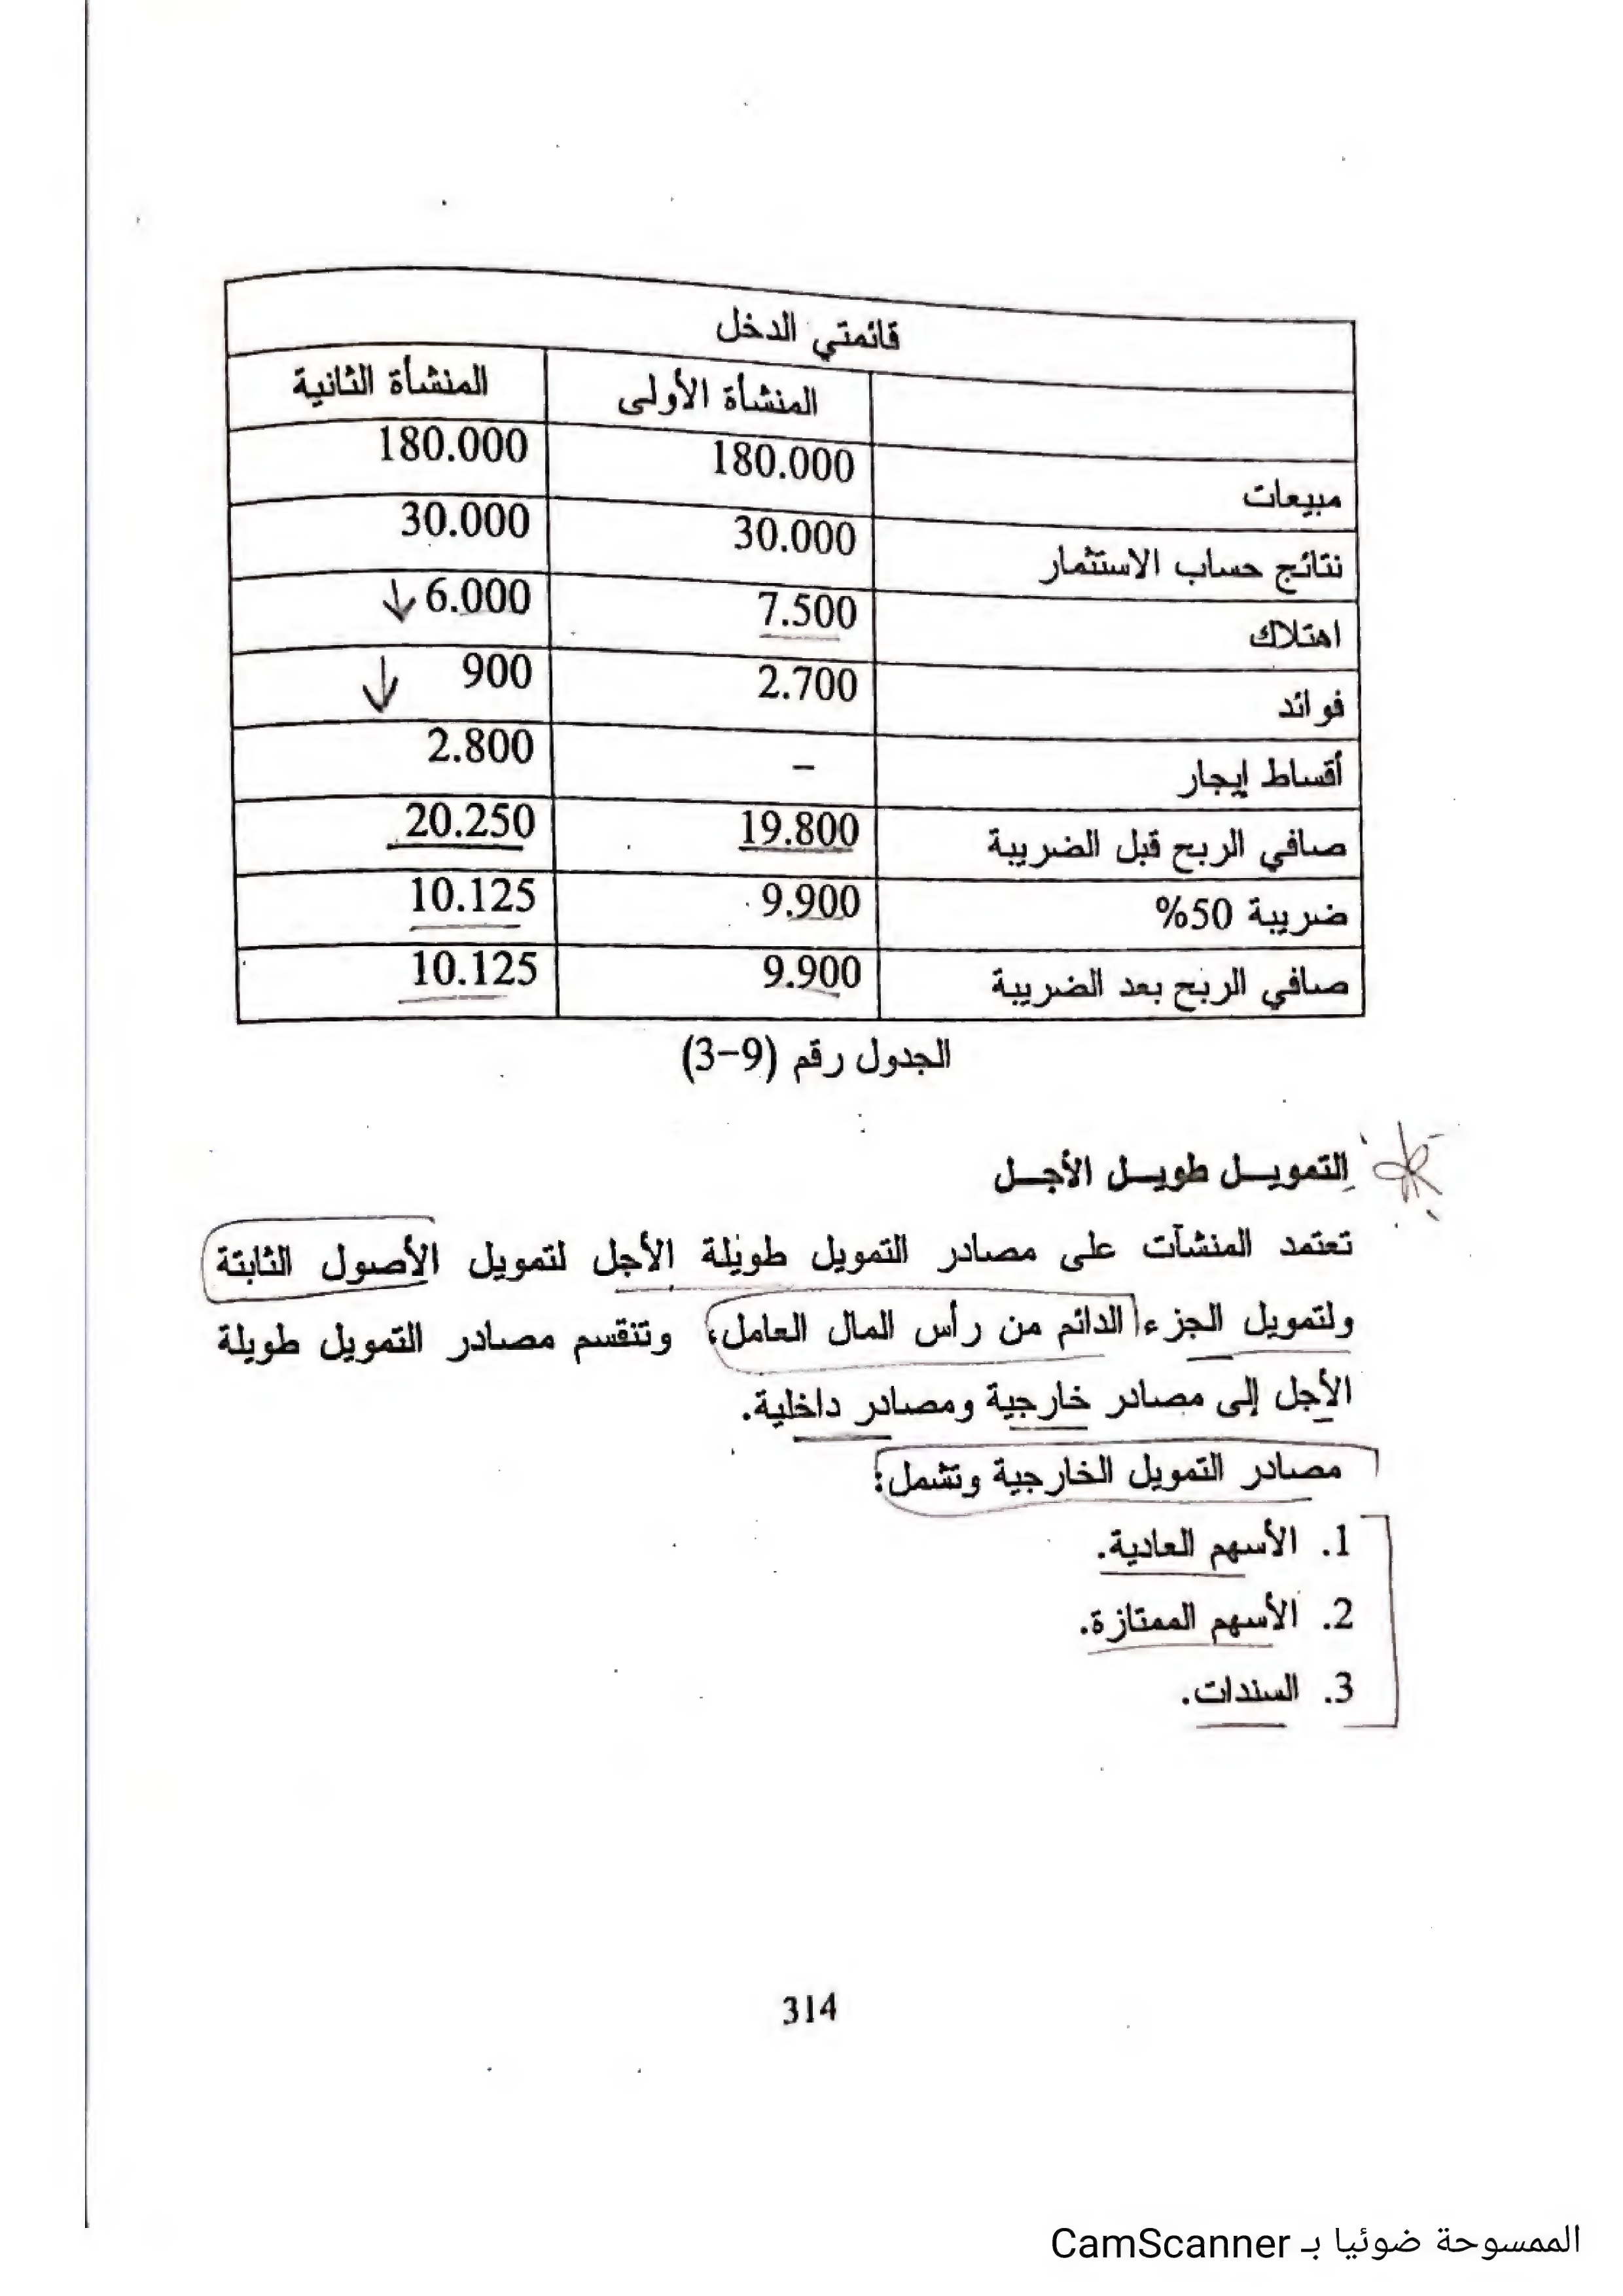 قائمتي الدخل
المنشأة الأولى المنشأة الثانية
مبيعات 180.000 180.000
نتائج حساب الاستثمار 30.000 30.000
اهتلاك 7.500 6.000
فوائد 2.700 900
أقساط إيجار – 2.800
صافي الربح قبل الضريبة 19.800 20.250
ضريبة 50% 9.900 10.125
صافي الربح بعد الضريبة 9.900 10.125
الجدول رقم (9-3)
التمويل طويل الأجل
تعتمد المنشآت على مصادر التمويل طويلة الأجل لتمويل الأصول الثابتة
ولتمويل الجزء الدائم من رأس المال العامل، وتنقسم مصادر التمويل طويلة
الأجل إلى مصادر خارجية ومصادر داخلية.
مصادر التمويل الخارجية وتشمل:
1. الأسهم العادية.
2. الأسهم الممتازة.
3. السندات.
314
الممسوحة ضوئيا بـ CamScanner